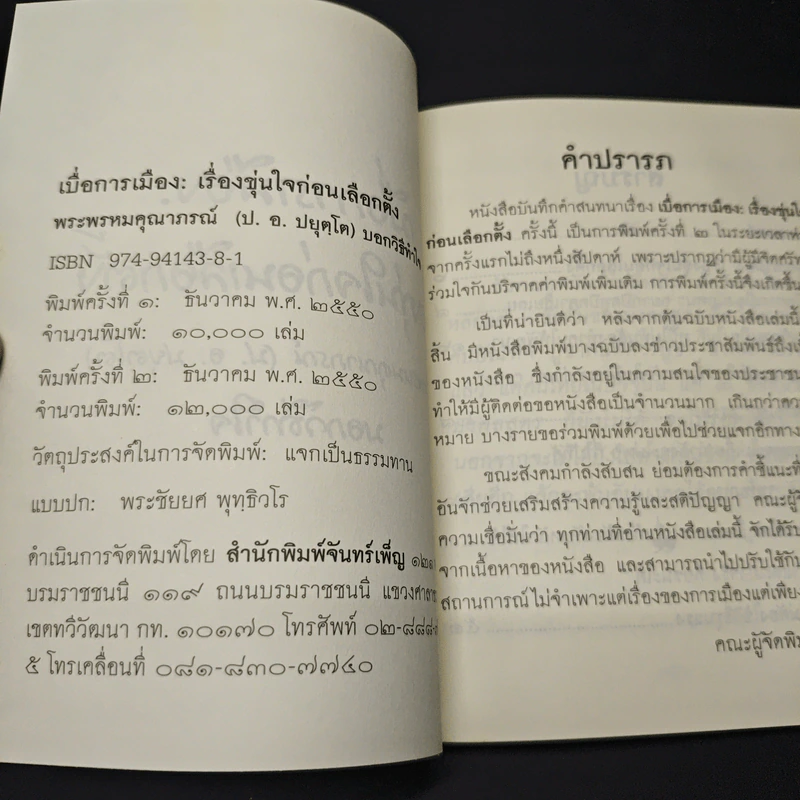 เบื่อการเมือง: เรื่องขุ่นใจก่อนเลือกตั้ง
พระพรหมคุณาภรณ์ (ป. อ. ปยุตฺโต) บอกวิธีทำใจ
ISBN 974-94143-8-1
พิมพ์ครั้งที่ ๑: ธันวาคม พ.ศ. ๒๕๕๐
จำนวนพิมพ์: ๑๐,๐๐๐ เล่ม
พิมพ์ครั้งที่ ๒: ธันวาคม พ.ศ. ๒๕๕๐
จำนวนพิมพ์: ๑๒,๐๐๐ เล่ม
วัตถุประสงค์ในการจัดพิมพ์: แจกเป็นธรรมทาน
แบบปก: พระชัยยศ พุทฺธิวโร
ดำเนินการจัดพิมพ์โดย สำนักพิมพ์จันทร์เพ็ญ
บรมราชชนนี ๑๑๙ ถนนบรมราชชนนี แขวง
เขตทวีวัฒนา กท. ๑๐๑๗๐ โทรศัพท์ ๐๒-๘๘๘
๕ โทรเคลื่อนที่ ๐๘๑-๘๓๐-๗๗๔๐
คำปรารภ
หนังสือบันทึกคำสนทนาเรื่อง เบื่อการเมือง: เรื่องขุ่น
ก่อนเลือกตั้ง ครั้งนี้ เป็นการพิมพ์ครั้งที่ ๒ ในระยะเวลา
จากครั้งแรกไม่ถึงหนึ่งสัปดาห์ เพราะปรากฏว่ามีผู้มีจิต
ร่วมใจกันบริจาคค่าพิมพ์เพิ่มเติม การพิมพ์ครั้งนี้จึงเกิดขึ้น
เป็นที่น่ายินดีว่า หลังจากต้นฉบับหนังสือเล่มนี้
สิ้น มีหนังสือพิมพ์บางฉบับลงข่าวประชาสัมพันธ์ถึง
ของหนังสือ ซึ่งกำลังอยู่ในความสนใจของประชาชน
ทำให้มีผู้ติดต่อขอหนังสือเป็นจำนวนมาก เกินกว่า
หมาย บางรายขอร่วมพิมพ์ด้วยเพื่อไปช่วยแจกอีกทาง
ขณะสังคมกำลังสับสน ย่อมต้องการคำชี้แนะที่
อันจักช่วยเสริมสร้างความรู้และสติปัญญา คณะผู้
ความเชื่อมั่นว่า ทุกท่านที่อ่านหนังสือเล่มนี้ จักได้รับ
จากเนื้อหาของหนังสือ และสามารถนำไปปรับใช้กับ
สถานการณ์ไม่จำเพาะแต่เรื่องของการเมืองแต่เพียง
คณะผู้จัดพิมพ์